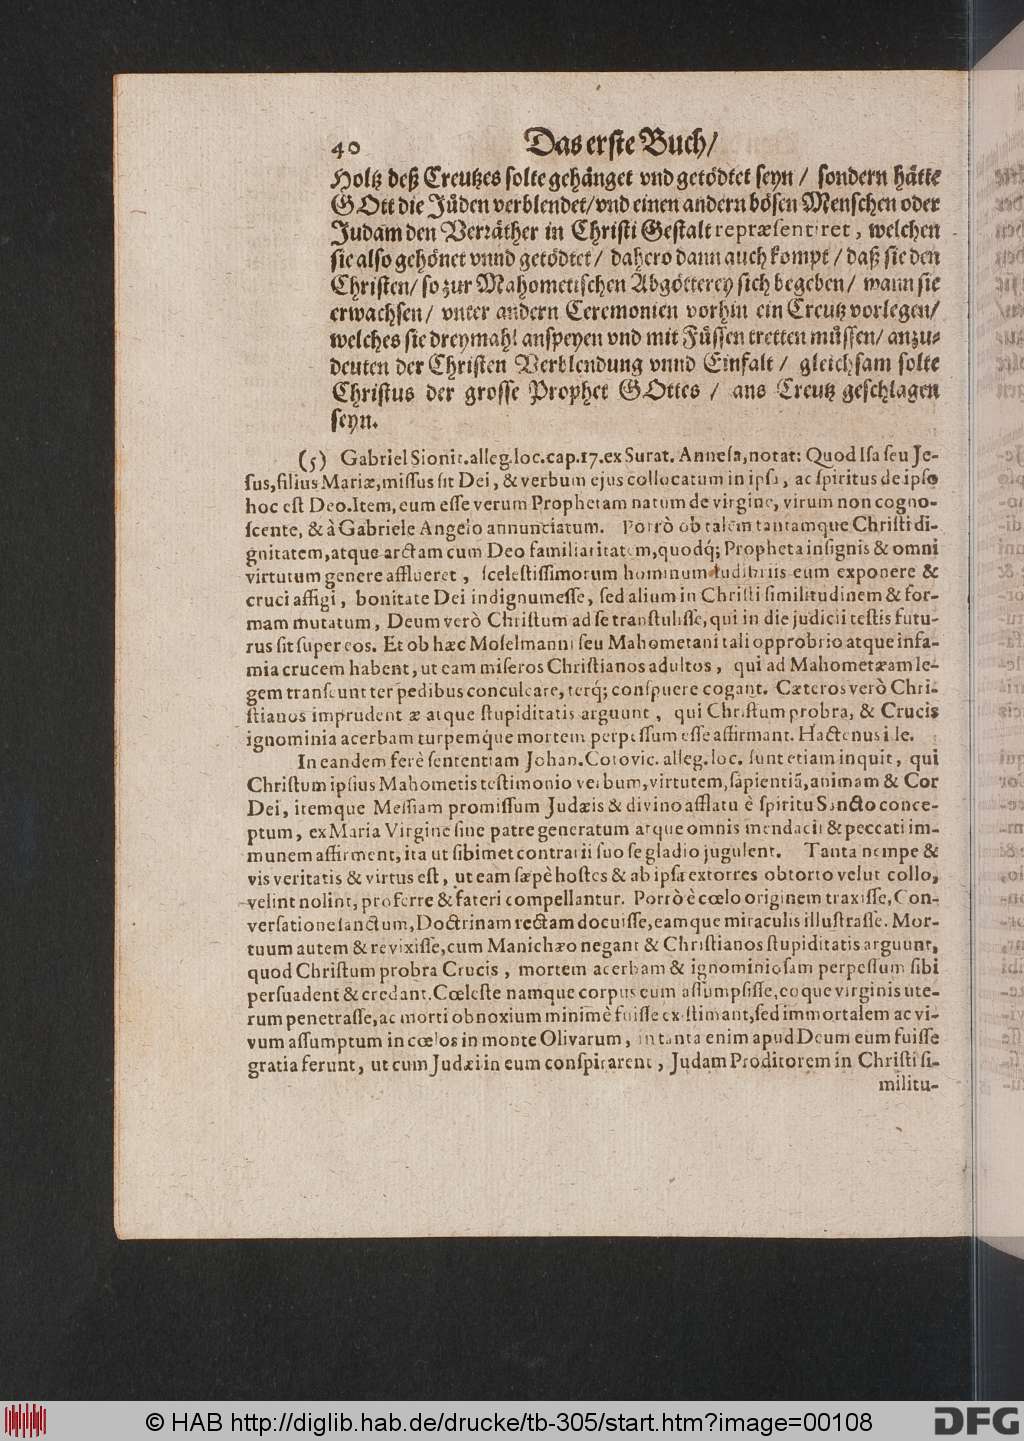 40 Das erste Buch/
Holtz deß Creutzes solte gehänget vnd getödtet seyn / sondern hätte
GOtt die Jüden verblendet/vnd einen andern bösen Menschen oder
Judam den Verräther in Christi Gestalt repræsentiret, welchen
sie also gehönet vnnd getödtet / dahero dann auch kompt / daß sie den
Christen/ so zur Mahometischen Abgötterey sich begeben / wann sie
erwachsen / vnter andern Ceremonien vorhin ein Creutz vorlegen/
welches sie dreymahl anspeyen vnd mit Füssen tretten müssen/ anzu-
deuten der Christen Verblendung vnnd Einfalt / gleichsam solte
Christus der grosse Prophet GOttes / ans Creutz geschlagen
seyn.
(5) Gabriel Sionit. alleg. loc. cap. 17. ex Surat. Annesa, notat: Quod Isa seu Je-
sus, filius Mariæ, missus sit Dei, & verbum ejus collocatum in ipsa, ac spiritus de ipso
hoc est Deo. Item, eum esse verum Prophetam natum de virgine, virum non cogno-
scente, & à Gabriele Angelo annunciatum. Porrò ob talem tantamque Christi di-
gnitatem, atque arctam cum Deo familiaritatem, quodq́; Propheta insignis & omni
virtutum genere afflueret, scelestissimorum hominum ludibriis eum exponere &
cruci affigi, bonitate Dei indignum esse, sed alium in Christi similitudinem & for-
mam mutatum, Deum verò Christum ad se transtulisse, qui in die judicii testis futu-
rus sit super eos. Et ob hæc Moselmanni seu Mahometani tali opprobrio atque infa-
mia crucem habent, ut eam miseros Christianos adultos, qui ad Mahometæam le-
gem transeunt ter pedibus conculcare, terq́; conspuere cogant. Cæteros verò Chri-
stianos imprudentiæ atque stupiditatis arguunt, qui Christum probra, & Crucis
ignominia acerbam turpemq́ue mortem perpessum esse affirmant. Hactenus ille.
In eandem ferè sententiam Johan. Cotovic. alleg. loc. sunt etiam inquit, qui
Christum ipsius Mahometis testimonio verbum, virtutem, sapientiã, animam & Cor
Dei, itemque Messiam promissum Judæis & divino afflatu è spiritu Sancto conce-
ptum, ex Maria Virgine sine patre generatum atque omnis mendacii & peccati im-
munem affirment, ita ut sibimet contrarii suo se gladio jugulent. Tanta nempe &
vis veritatis & virtus est, ut eam sæpè hostes & ab ipsa extorres obtorto velut collo,
velint nolint, proferre & fateri compellantur. Porrò è cœlo originem traxisse, Con-
versatione sanctum, Doctrinam rectam docuisse, eamque miraculis illustrasse. Mor-
tuum autem & revixisse, cum Manichæo negant & Christianos stupiditatis arguunt,
quod Christum probra Crucis, mortem acerbam & ignominiosam perpessum sibi
persuadent & credant. Cœleste namque corpus eum assumpsisse, eoque virginis ute-
rum penetrasse, ac morti obnoxium minimè fuisse existimant, sed immortalem ac vi-
vum assumptum in cœlos in monte Olivarum, in tanta enim apud Deum eum fuisse
gratia ferunt, ut cum Judæi in eum conspirarent, Judam Proditorem in Christi si-
militu-
© HAB http://diglib.hab.de/drucke/tb-305/start.htm?image=00108
DFG